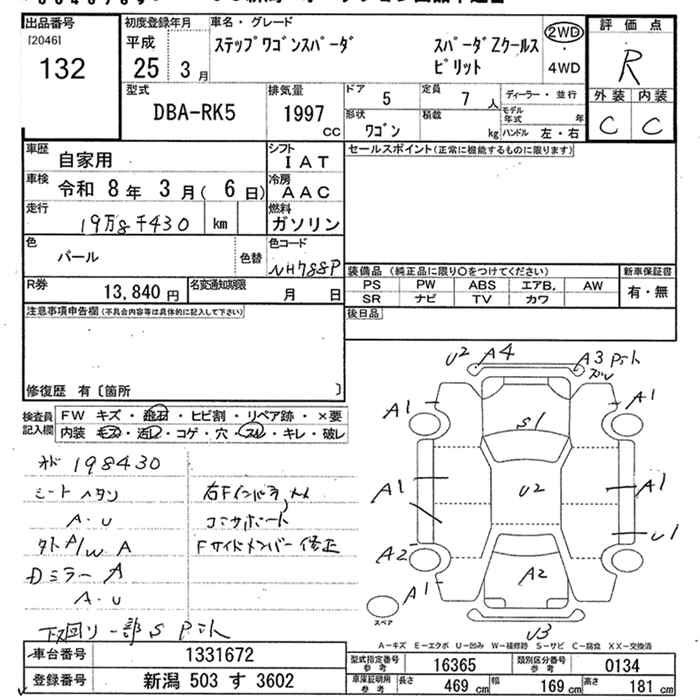 出品番号
[2046]
132
初度登録年月
平成
25年 3月
車名・グレード
ステップワゴンスパーダ
スパーダZクールス
ピリット
2WD
・
4WD
評価点
R
外装 内装
C C
型式
DBA-RK5
排気量
1997
CC
ドア
5
定員
7人
形状
ワゴン
積載
kg
ディーラー・並行
モデル年式 年
ハンドル 左・右
車歴
自家用
シフト
IAT
車検
令和 8年 3月( 6日)
冷房
AAC
走行
19万8千430 km
燃料
ガソリン
色
パール
色替
色コード
NH788P
R券
13,840円
名変通知期限
月 日
セールスポイント(正常に機能するものに限ります)
装備品 (純正品に限り○をつけてください)
PS PW ABS エアB. AW
SR ナビ TV カワ
新車保証書
有・無
後日品
注意事項申告欄(不具合内容等は具体的に記入して下さい)
修復歴 有〔箇所 〕
検査員
記入欄
FW キズ・飛石・ヒビ割・リペア跡・×要
内装 モス・活レ・コゲ・穴・スレ・キレ・破レ
198430
シートヘタリ
A・U
A/W A
Dミラー A
A・U
右Fインパネ
コアサポート
Fサイドメンバー 修正
下廻リ一部S
U2 A4
A3
A1
A1
S1
A1
U2
A1
U1
A2
A2
A1
スペア
U3
A-キズ E-エクボ U-凹み W-補修跡 S-サビ C-腐食 XX-交換済
車台番号
1331672
登録番号
新潟 503 す 3602
型式指定番号
参考
16365
類別区分番号
参考
0134
車庫証明用
参考
長さ 469 cm 幅 169 cm 高さ 181 cm